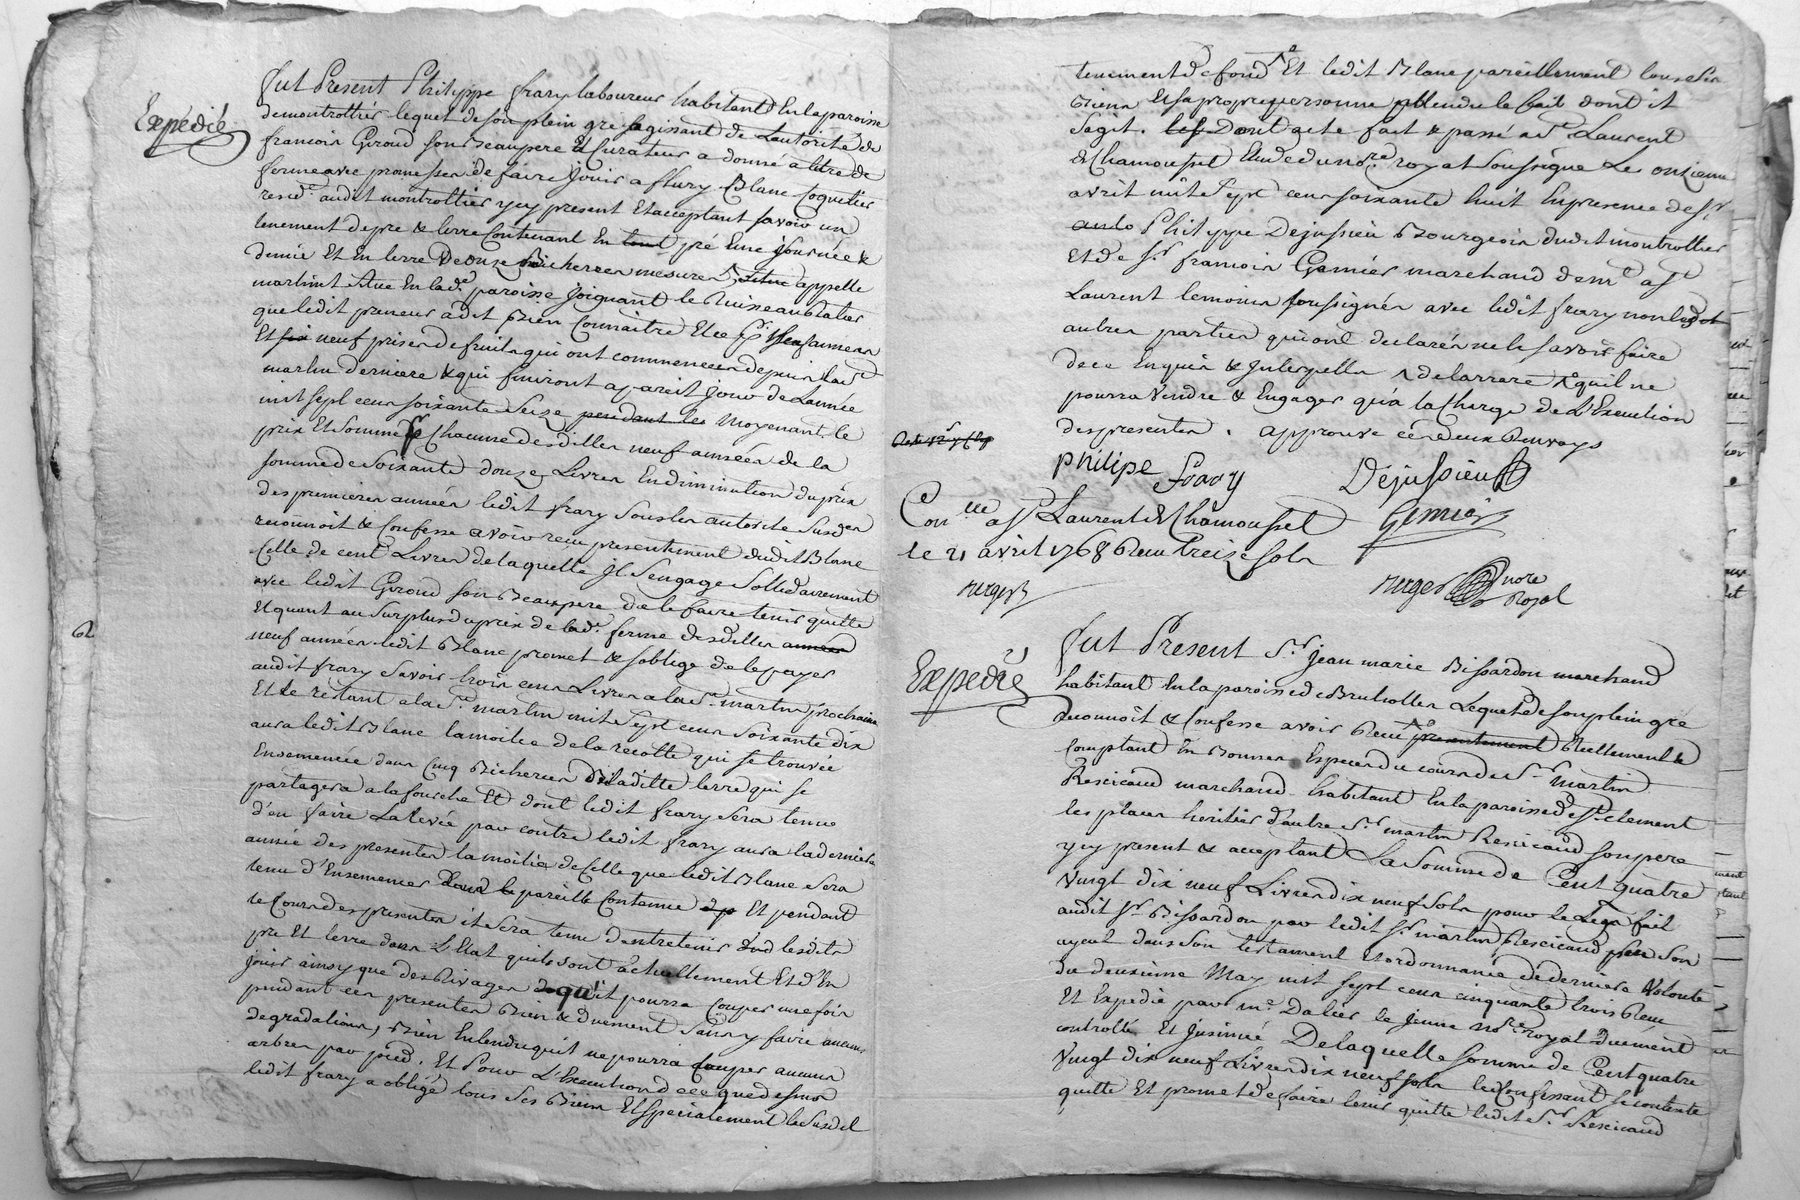 Expédié
fut Present Philippe frary laboureur habitant En la paroisse
de montrottier lequel de son plein gre agissant de Lautorité de
francois Giroud son Beaupere & Curateur a donné a titre de
ferme avec promesse de faire Jouir a fleury Blanc Coquetier
resid.t audit montrottier y cy present Et acceptant savoir un
tenement de pre & terre Contenant En pré Une Journée &
demie Et En terre Bicherees mesure appellé
martinat situe En lad.e paroisse Joignant le Ruisseau
que ledit preneur a dit Bien Connaitre Et ce
Et six neuf prises de fruits qui ont commencées depuis la s.t
martin derniere & qui finiront a pareil Jour de Lannée
mil sept cens soixante Seize pendant les Moyenant le
prix Et Somme Chacune desdittes neuf années de la
somme de Soixante douze Livres En diminution du prix
des premieres années ledit frary Sous les autorité Susd.es
reconnoit & Confesse avoir reçu presentement dudit Blanc
Celle de cent Livres de laquelle Il S'engage Sollidairement
avec ledit Giroud son Beaupere de le faire tenir quitte
Et quant au Surplus du prix de lad.e ferme desdittes années
neuf années ledit Blanc promet & soblige de le payer
audit frary Savoir trois cens Livres a la s.t martin prochaine
Et le restant a la s.t martin mil sept cens Soixante dix
aura ledit Blanc la moitie de la recolte qui se trouvée
Ensemencée dans Cinq Bicherees De laditte terre qui se
partagera a la fourche Et dont ledit frary sera tenu
d'en faire La levée par contre ledit frary aura la derniere
année des presentes la moitié de Celle que ledit Blanc Sera
tenu d'Ensemencer dans la pareille Contenue Et pendant
le Cours des presentes il Sera tenu d'entretenir lesdits
pre Et terre dans L'Etat quils sont actuellement Et d'En
Jouir ainsy que des Rivages qu'il pourra Couper une fois
pendant ces presentes Bien & Duement Sans y faire aucunes
degradations, Bien Entendu quil ne pourra Couper aucuns
arbres par pied. Et Pour L'Execution de ce que dessus
ledit frary a obligé tous Ses Biens Et specialement le susdit
tenement de fond Et ledit Blanc pareillement tous ses
Biens Et sa propre personne attendu le bail dont il
Sagit. Dont acte fait & passé a S.t Laurent
de Chamousset Etude du no.re royal soussigné Le onzieme
avril mil sept cens soixante huit En presence de s.r
Philippe Dejussieu Bourgeois dudit montrottier
Et de s.r francois Garnier marchand dem.t a s.t
Laurent temoins soussignés avec ledit frary non ledit
autres parties qui ont declarés ne le savoir faire
de ce Enquis & Interpellés quil ne
pourra Vendre & Engager qu'a la Charge de L'Execution
des presentes. approuvé ces deux Renvoys
philipe frary Dejussieu
Con.lle a s.t Laurent de Chamousset
le 21 avril 1768 Recu treize sols
nore
Royal
Expédié
fut Present S.r jean marie Bissardon marchand
habitant En la paroisse de Brullioles Lequel de son plein gré
reconnoit & Confesse avoir Recu presentement Reellement &
Comptant En Bonnes Especes du cours de S.r martin
Rescicaud marchand habitant En la paroisse de s.t clement
les places heritier d'autre S.r martin Rescicaud son pere
y cy present & acceptant La Somme de Cent quatre
Vingt dix neuf Livres dix neuf sols pour le Legs fait
audit s.r Bissardon par ledit s.r martin Rescicaud son
ayeul dans Son testament Et ordonnance de derniere Volonte
du deuxieme May mil sept cens cinquante trois Recu
Et Expedié par m.e Dalier le jeune no.re royal Duement
controllé Et Insinué Delaquelle Somme de Cent quatre
Vingt dix neuf Livres dix neuf sols le Confessant se contente
quitte Et promet de faire tenir quitte ledit s.r Rescicaud